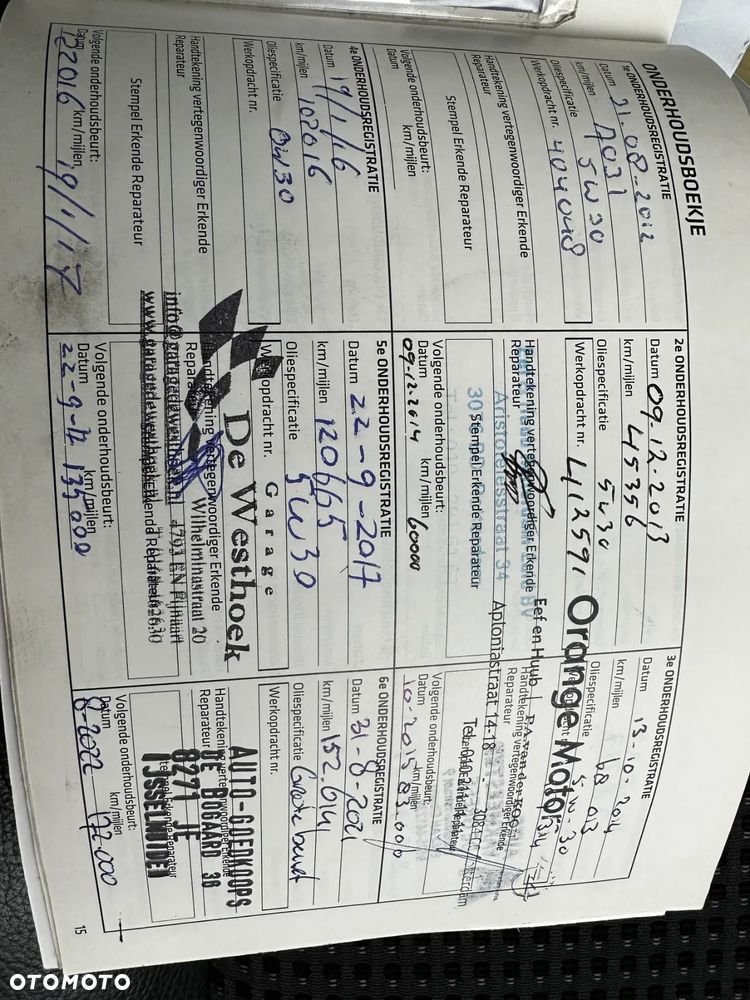 ONDERHOUDSBOEKJE
1e ONDERHOUDSREGISTRATIE
Datum 21-08-2012
km/mijlen 7031
Oliespecificatie 5W30
Werkopdracht nr. 404048
Handtekening vertegenwoordiger Erkende
Reparateur
Stempel Erkende Reparateur
Volgende onderhoudsbeurt:
Datum km/mijlen
2e ONDERHOUDSREGISTRATIE
Datum 09-12-2013
km/mijlen 45356
Oliespecificatie 5W30
Werkopdracht nr. 412591
Handtekening vertegenwoordiger Erkende
Reparateur
Aristotelesstraat 34
Stempel Erkende Reparateur
Volgende onderhoudsbeurt:
Datum km/mijlen
09-12-2014 60000
3e ONDERHOUDSREGISTRATIE
Datum 13-10-2014
km/mijlen 68 013
Oliespecificatie 5-W-30
Orange Motor
Eef en Huub
Handtekening vertegenwoordiger Erkende
Reparateur
Aploniastraat 14-18
Volgende onderhoudsbeurt:
Datum km/mijlen
10-2015 83.000
4e ONDERHOUDSREGISTRATIE
Datum 19/1/16
km/mijlen 102016
Oliespecificatie 0W30
Werkopdracht nr.
Handtekening vertegenwoordiger Erkende
Reparateur
Stempel Erkende Reparateur
Volgende onderhoudsbeurt:
Datum km/mijlen
122016 19/1/17
5e ONDERHOUDSREGISTRATIE
Datum 22-9-2017
km/mijlen 120665
Oliespecificatie 5W30
Werkopdracht nr.
Garage
De Westhoek
Handtekening vertegenwoordiger Erkende
Reparateur
Wilhelminastraat 20
4793 EN Fijnaart
Volgende onderhoudsbeurt:
Datum km/mijlen
135000
6e ONDERHOUDSREGISTRATIE
Datum 31-8-2021
km/mijlen 152.614
Oliespecificatie Grote beurt
Werkopdracht nr.
AUTO-GOEDKOOPS
Handtekening vertegenwoordiger Erkende
DE BOGAARD 36
Reparateur
8271
IJSSELMUIDEN
Volgende onderhoudsbeurt:
Datum km/mijlen
8-2022 172.000
15
OTOMOTO